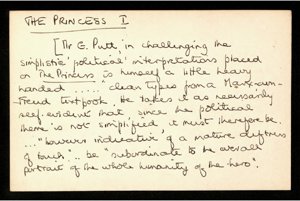 THE PRINCESS I
[Mr G. Putt, in challenging the
simplistic 'political' interpretations placed
on The Princess is himself a little heavy
handed ...... "clean types from a Marx-cum-
Freud textbook. He takes it as necessarily
self-evident that, since the political
theme is not simplified, it must therefore be
... "however indicative of a mature deftness
of touch".. be "subordinate to the overall
portrait of the whole humanity of the hero".